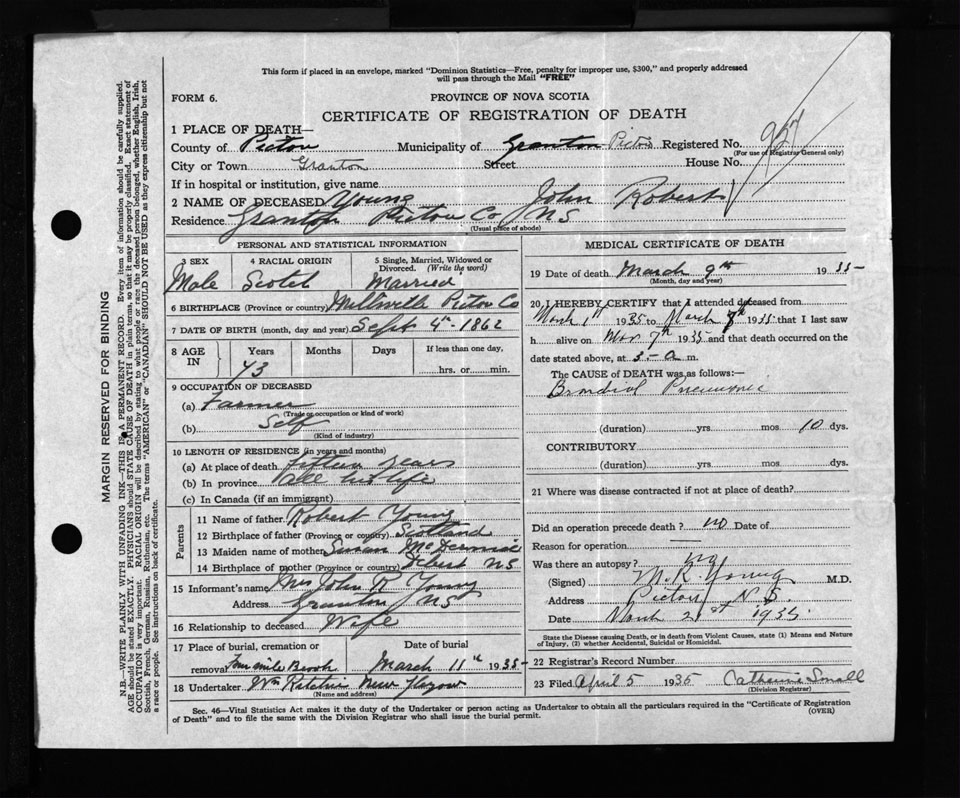 This form if placed in an envelope, marked "Dominion Statistics—Free, penalty for improper use, $300," and properly addressed
will pass through the Mail "FREE"
FORM 6.
PROVINCE OF NOVA SCOTIA
CERTIFICATE OF REGISTRATION OF DEATH
1 PLACE OF DEATH—
County of Pictou Municipality of Granton Pictou Registered No. 927
(For use of Registrar General only)
City or Town Granton Street House No.
If in hospital or institution, give name
2 NAME OF DECEASED Young John Robert
Residence Granton Pictou Co NS
(Usual place of abode)
PERSONAL AND STATISTICAL INFORMATION
3 SEX 4 RACIAL ORIGIN 5 Single, Married, Widowed or
Divorced. (Write the word)
Male Scotch Married
6 BIRTHPLACE (Province or country) Millsville Pictou Co
7 DATE OF BIRTH (month, day and year) Sept 4th 1862
8 AGE IN Years Months Days If less than one day,
73 hrs. or min.
9 OCCUPATION OF DECEASED
(a) Farmer
(Trade, occupation or kind of work)
(b) Self
(Kind of industry)
10 LENGTH OF RESIDENCE (in years and months)
(a) At place of death fifteen years
(b) In province all his life
(c) In Canada (if an immigrant)
Parents
11 Name of father Robert Young
12 Birthplace of father (Province or country) Scotland
13 Maiden name of mother Susan
14 Birthplace of mother (Province or country) NS
15 Informant's name Mrs John R Young
Address Granton NS
16 Relationship to deceased Wife
17 Place of burial, cremation or Date of burial
removal Four mile Brook March 11th 1935
18 Undertaker Wm Ritchie New Glasgow
(Name and address)
MEDICAL CERTIFICATE OF DEATH
19 Date of death March 9th 1935
(Month, day and year)
20 I HEREBY CERTIFY that I attended deceased from
March 1st 1935 to March 1935 that I last saw
h alive on Mar 7th 1935 and that death occurred on the
date stated above, at 3 - a m.
The CAUSE of DEATH was as follows:—
Bronchial Pneumonia
(duration) yrs. mos 10 dys.
CONTRIBUTORY
(duration) yrs. mos. dys.
21 Where was disease contracted if not at place of death?
Did an operation precede death? no Date of
Reason for operation —
Was there an autopsy? no
(Signed) M.R. Young M.D.
Address Pictou N.S.
Date March 21st 1935
State the Disease causing Death, or in death from Violent Causes, state (1) Means and Nature
of Injury, (2) whether Accidental, Suicidal or Homicidal.
22 Registrar's Record Number
23 Filed April 5 1935 Catherine Small
(Division Registrar)
Sec. 46—Vital Statistics Act makes it the duty of the Undertaker or person acting as Undertaker to obtain all the particulars required in the "Certificate of Registration
of Death" and to file the same with the Division Registrar who shall issue the burial permit.
(OVER)
MARGIN RESERVED FOR BINDING
N.B.—WRITE PLAINLY WITH UNFADING INK—THIS IS A PERMANENT RECORD. Every item of information should be carefully supplied.
AGE should be stated EXACTLY. PHYSICIANS should STATE CAUSE OF DEATH in plain terms, so that it may be properly classified. Exact statement of
OCCUPATION is very important. RACIAL ORIGIN will be described by stating to what people or race the deceased person belonged, whether English, Irish,
Scottish, French, German, Russian, Ruthenian, etc. The terms "AMERICAN" or "CANADIAN" SHOULD NOT BE USED as they express citizenship but not
a race or people. See instructions on back of certificate.